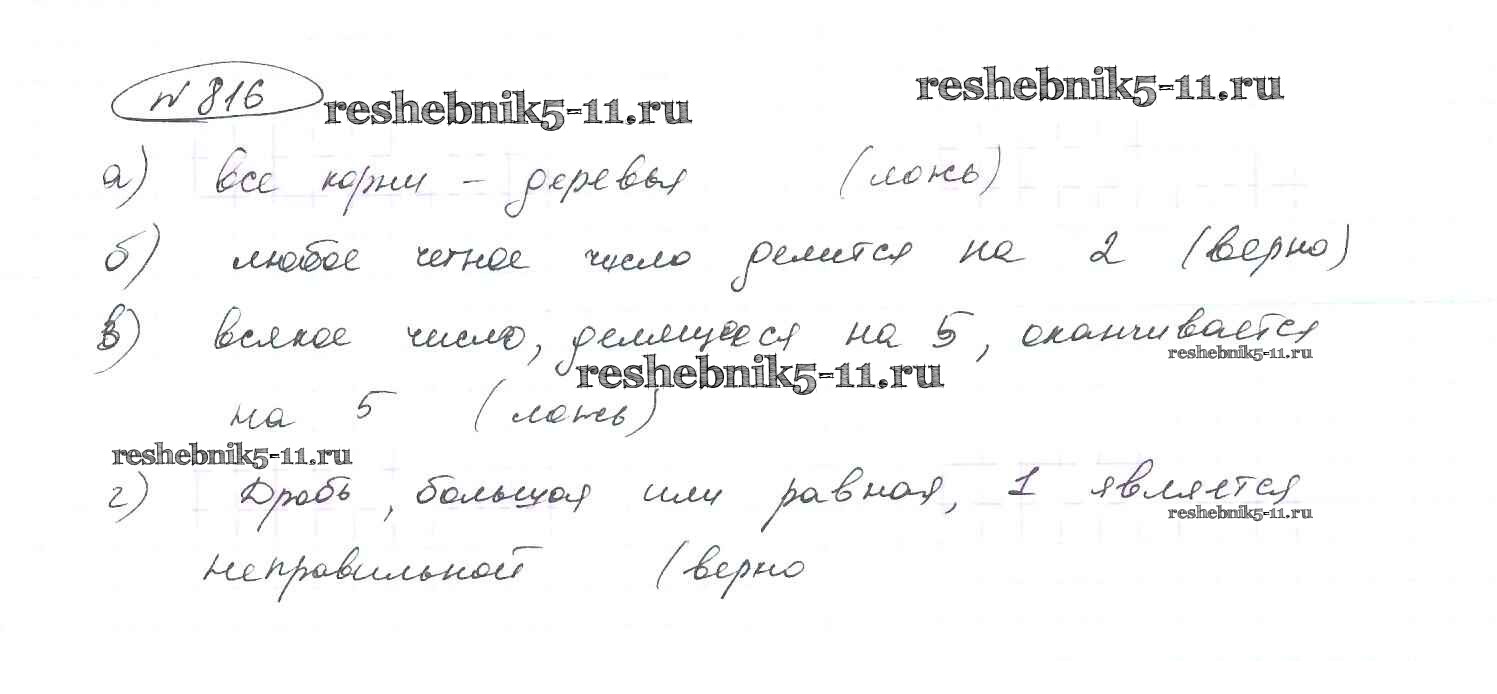 № 816 reshebnik5-11.ru reshebnik5-11.ru
а) все корни – деревья (ложь)
б) любое четное число делится на 2 (верно)
в) всякое число, делящееся на 5, оканчивается
reshebnik5-11.ru reshebnik5-11.ru
на 5 (ложь)
reshebnik5-11.ru
г) Дробь, большая или равная, 1 является
reshebnik5-11.ru
неправильной (верно